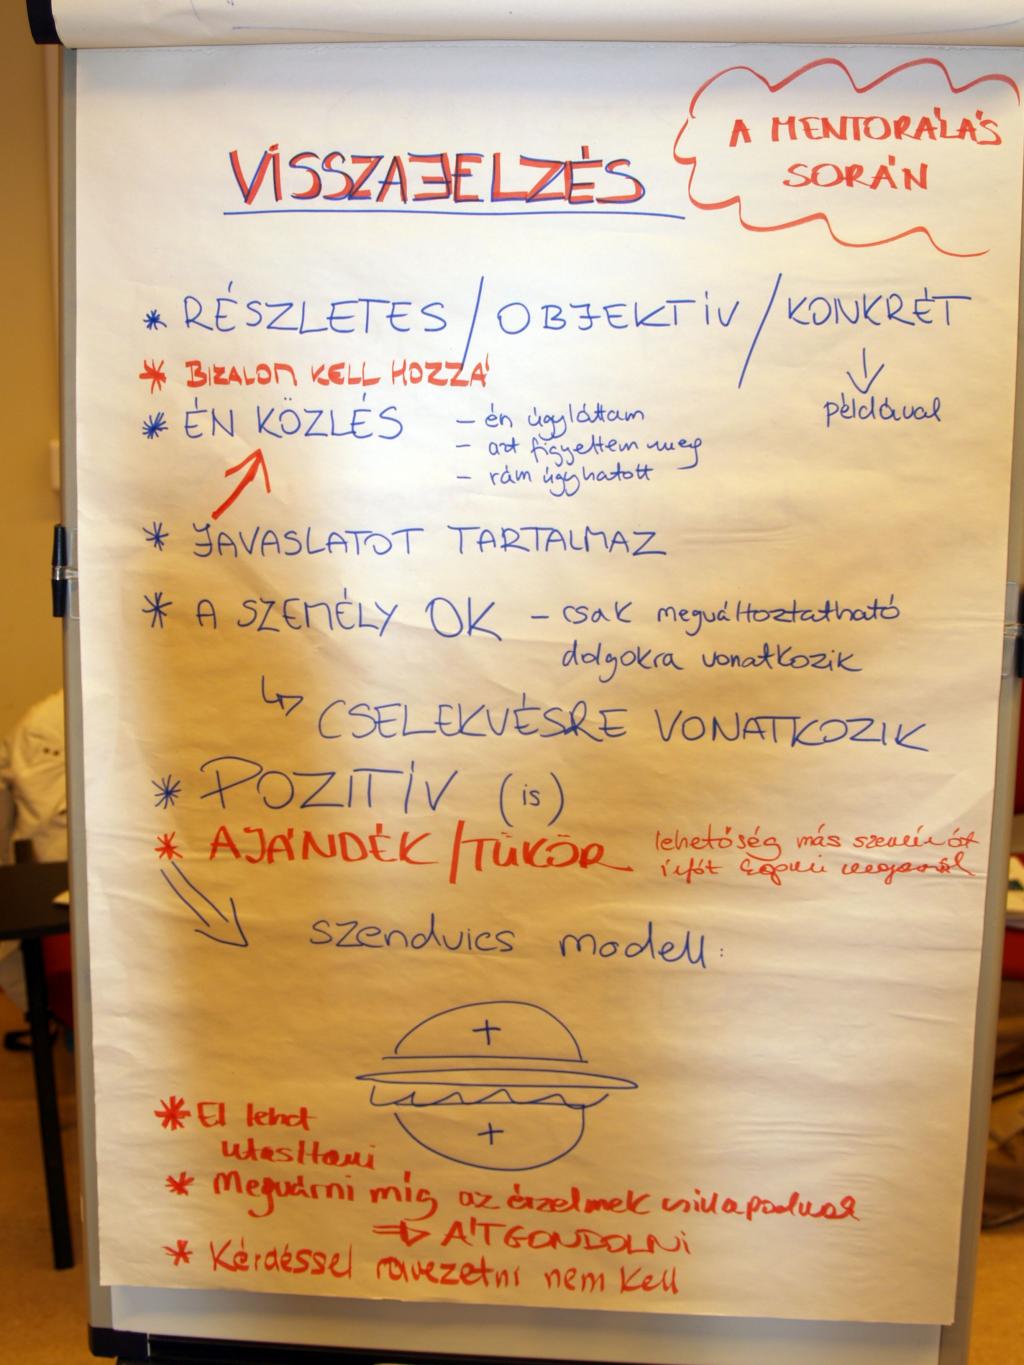 A MENTORÁLÁS
SORÁN
VISSZAJELZÉS
* RÉSZLETES / OBJEKTÍV / KONKRÉT
példával
* BIZALOM KELL HOZZÁ
* ÉN KÖZLÉS
- én úgy láttam
- azt figyeltem meg
- rám úgy hatott
* JAVASLATOT TARTALMAZ
* A SZEMÉLY OK - csak megváltoztatható
dolgokra vonatkozik
CSELEKVÉSRE VONATKOZIK
* POZITÍV (is)
* AJÁNDÉK / TÜKÖR
lehetőség más
szendvics modell:
+
+
* El lehet
utasítani
* Megvárni míg az érzelmek csillapodnak
⇒ ÁTGONDOLNI
* Kérdéssel rávezetni nem kell